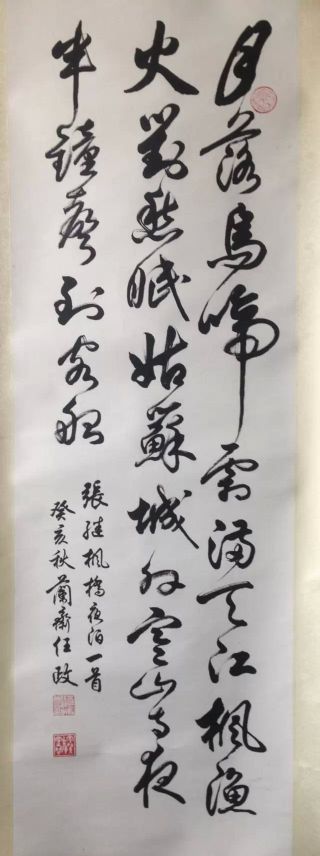 月落烏啼霜滿天江楓漁
火對愁眠姑蘇城外寒山寺夜
半鐘聲到客船
張継楓橋夜泊一首
癸亥秋蘭齋任政